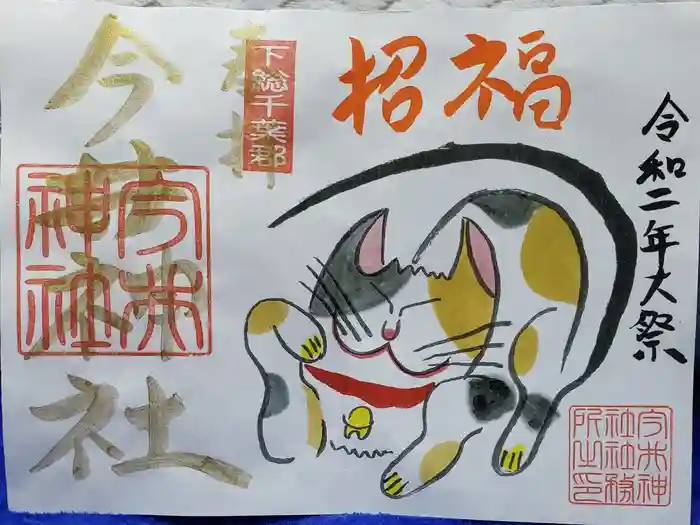 令和二年大祭
招福
奉拝
下総千葉郡
今井神社
今井
神社
今井神
社社務
所之印